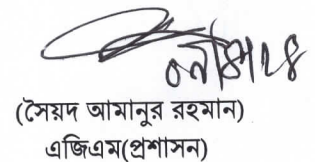 (সৈয়দ আমানুর রহমান)
এজিএম(প্রশাসন)